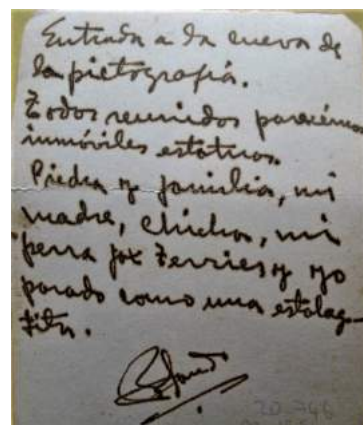 Entrada a la cueva de
la pictografía.
Todos reunidos parecíamos
inmóviles estatuas.
Piedra y familia, mi
madre, Chichos, mi
perra fox Terries y yo
parado como una estalag-
tita.
20.746